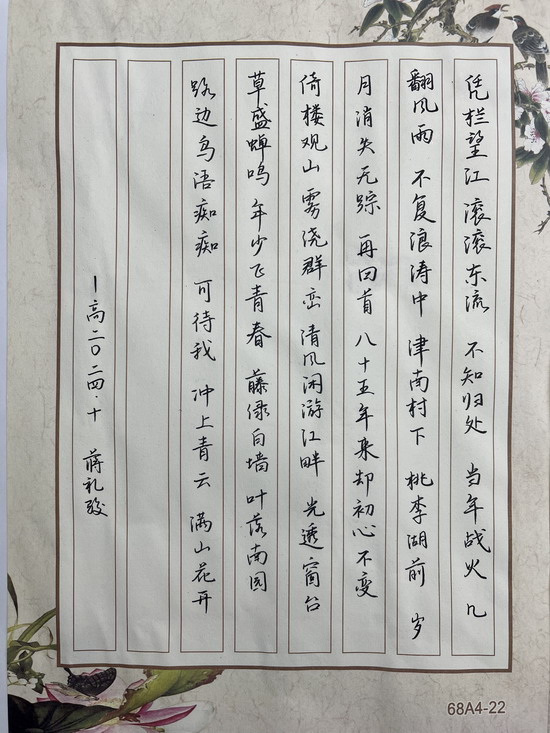 凭栏望江 滚滚东流 不知归处 当年战火 几
翻风雨 不复浪涛中 津南村下 桃李湖前 岁
月消失无踪 再回首 八十五年来却初心不变
倚楼观山 雾浇群峦 清风闲游江畔 光透窗台
草盛蝉鸣 年少飞青春 藤绿白墙 叶落南园
路边鸟语痴痴 可待我 冲上青云 满山花开
高二〇二四·十 蒋礼
68A4-22